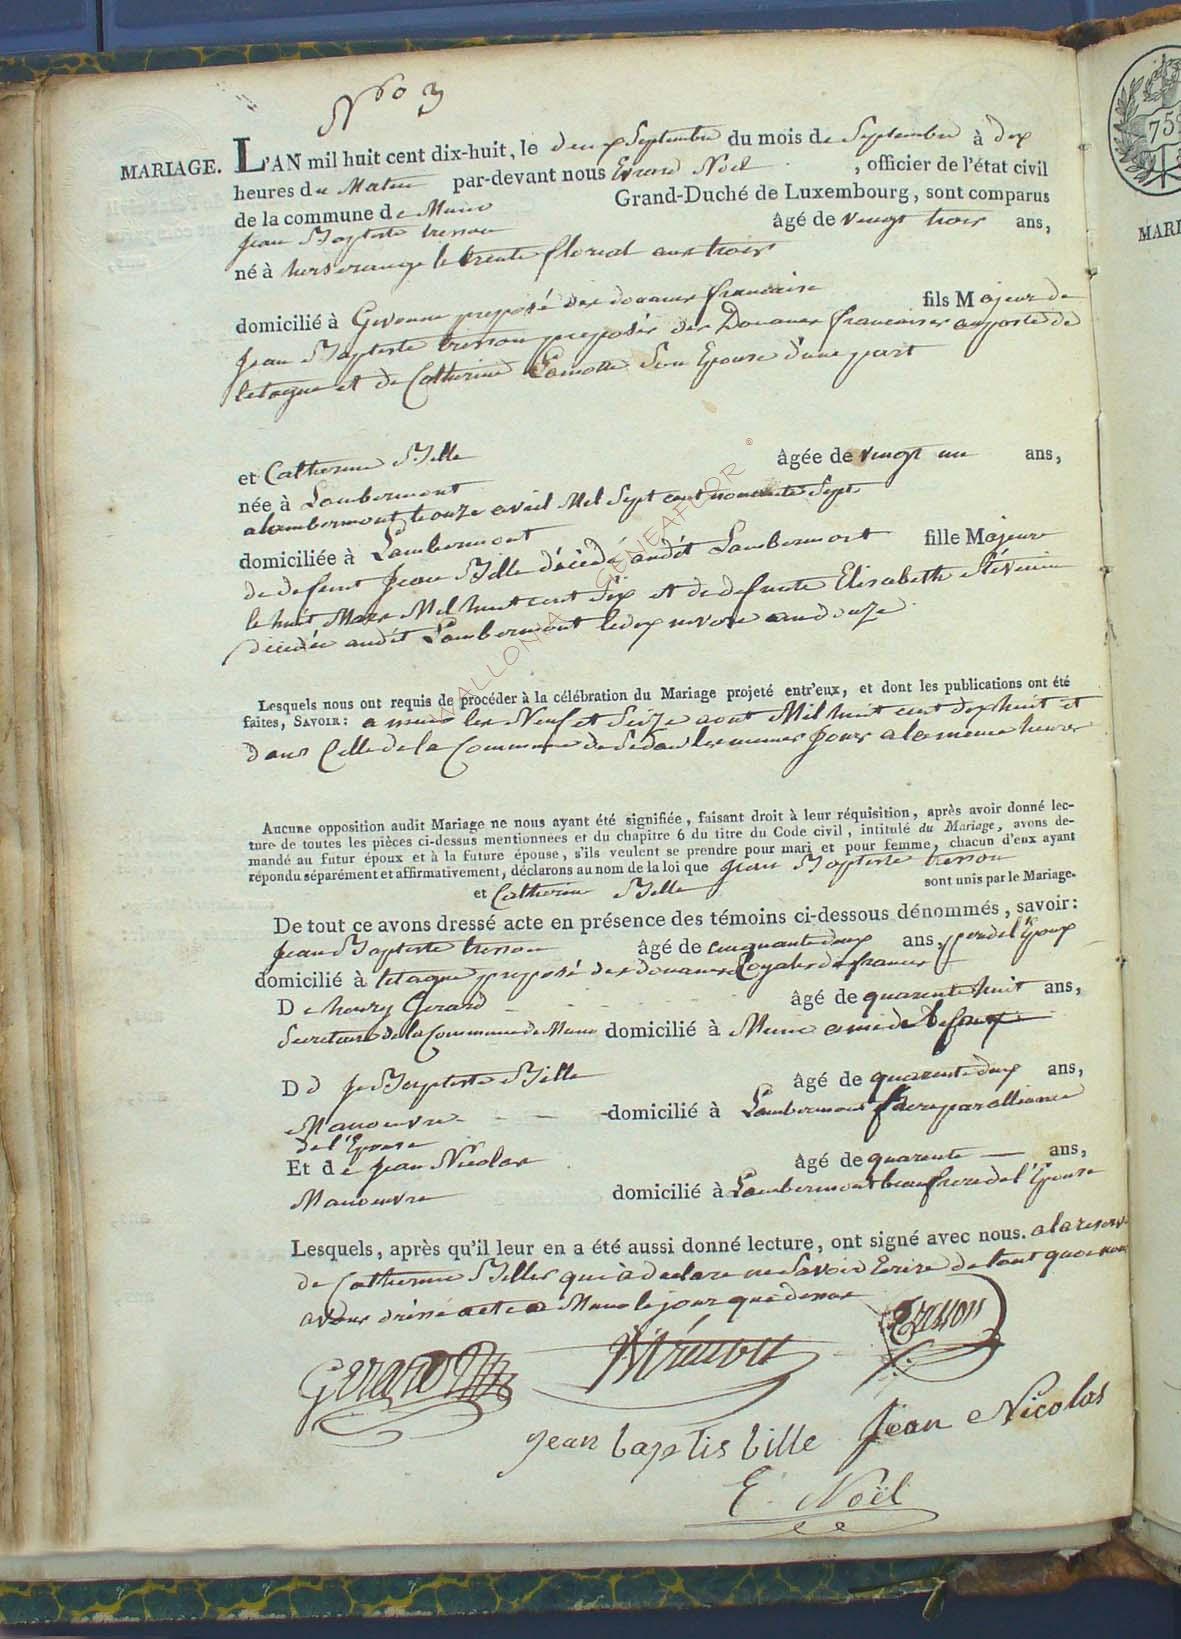 N.ro 3
MARIAGE. L'AN mil huit cent dix-huit, le deux Septembre du mois de Septembre à dix
heures du Matin par-devant nous Evrard Noël, officier de l'état civil
de la commune de Muno Grand-Duché de Luxembourg, sont comparus
Jean Baptiste tresson âgé de vingt trois ans,
né à herserange le trente floreal an trois
domicilié à Givonne preposé des douanes francaise fils Majeur de
Jean Baptiste tresson preposés des Douanes francaises au poste de
letagne et de Catherine Lamotte Son Epouse d'une part
et Catherine Bille âgée de vingt un ans,
née à Lambermont
a lambermont le onze avril Mil Sept cent nonante Sept
domiciliée à Lambermont fille Majeure
de defunt Jean Bille décédé audit Lambermont
le huit Mars Mil huit cent Six et de defunte Elisabeth Stévenin
décédée audit Lambermont le dix nivose an douze
Lesquels nous ont requis de procéder à la célébration du Mariage projeté entr'eux, et dont les publications ont été
faites, SAVOIR: a muno les Neuf et Seize aout Mil huit cent dix huit et
dans Celle de la Commune de Sedan les memes Jours a la meme heure
Aucune opposition audit Mariage ne nous ayant été signifiée, faisant droit à leur réquisition, après avoir donné lec-
ture de toutes les pièces ci-dessus mentionnées et du chapitre 6 du titre du Code civil, intitulé du Mariage, avons de-
mandé au futur époux et à la future épouse, s'ils veulent se prendre pour mari et pour femme, chacun d'eux ayant
répondu séparément et affirmativement, déclarons au nom de la loi que Jean Baptiste tresson
et Catherine Bille sont unis par le Mariage.
De tout ce avons dressé acte en présence des témoins ci-dessous dénommés, savoir:
Jean Baptiste tresson âgé de cinquante deux ans, pere de l'Epoux
domicilié à letagne preposé des douanes Royales de france
De henry Gerard âgé de quarente huit ans,
Secretaire de la Commune de Muno domicilié à Muno ami de l'Epoux
De J. Baptiste Bille âgé de quarente deux ans,
Manoeuvre domicilié à Lambermont frere par alliance
de l'Epouse
Et de Jean Nicolas âgé de quarente ans,
Manoeuvre domicilié à Lambermont beau frere de l'Epouse
Lesquels, après qu'il leur en a été aussi donné lecture, ont signé avec nous. a la reserve
de Catherine Bille qui à declaré ne Savoir Ecrire de tout quoi nous
avons dressé acte a Muno le jour que dessus
Gerard Tresson
jean baptis bille Jean Nicolas
E. Noël
WALLONIA GENEAFUOR ®
75
MARI